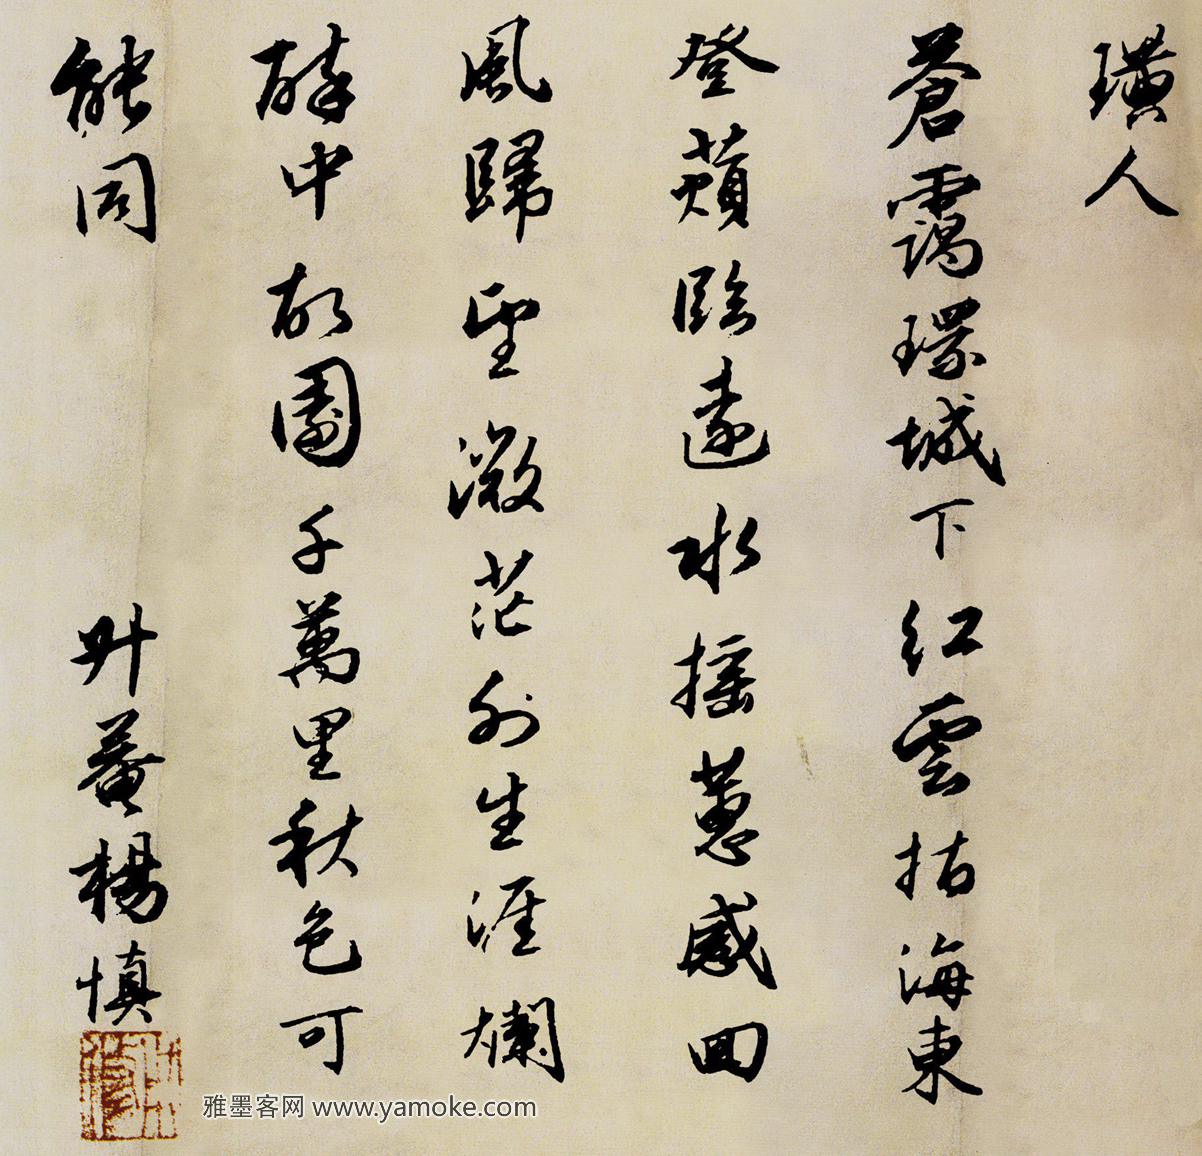 璜人
蒼靄環城下紅雲指海東
登蘋臨遠水搖蕙感回
風歸望微茫外生涯爛
醉中故園千萬里秋色可
能同
升菴楊慎
雅墨客网 www.yamoke.com